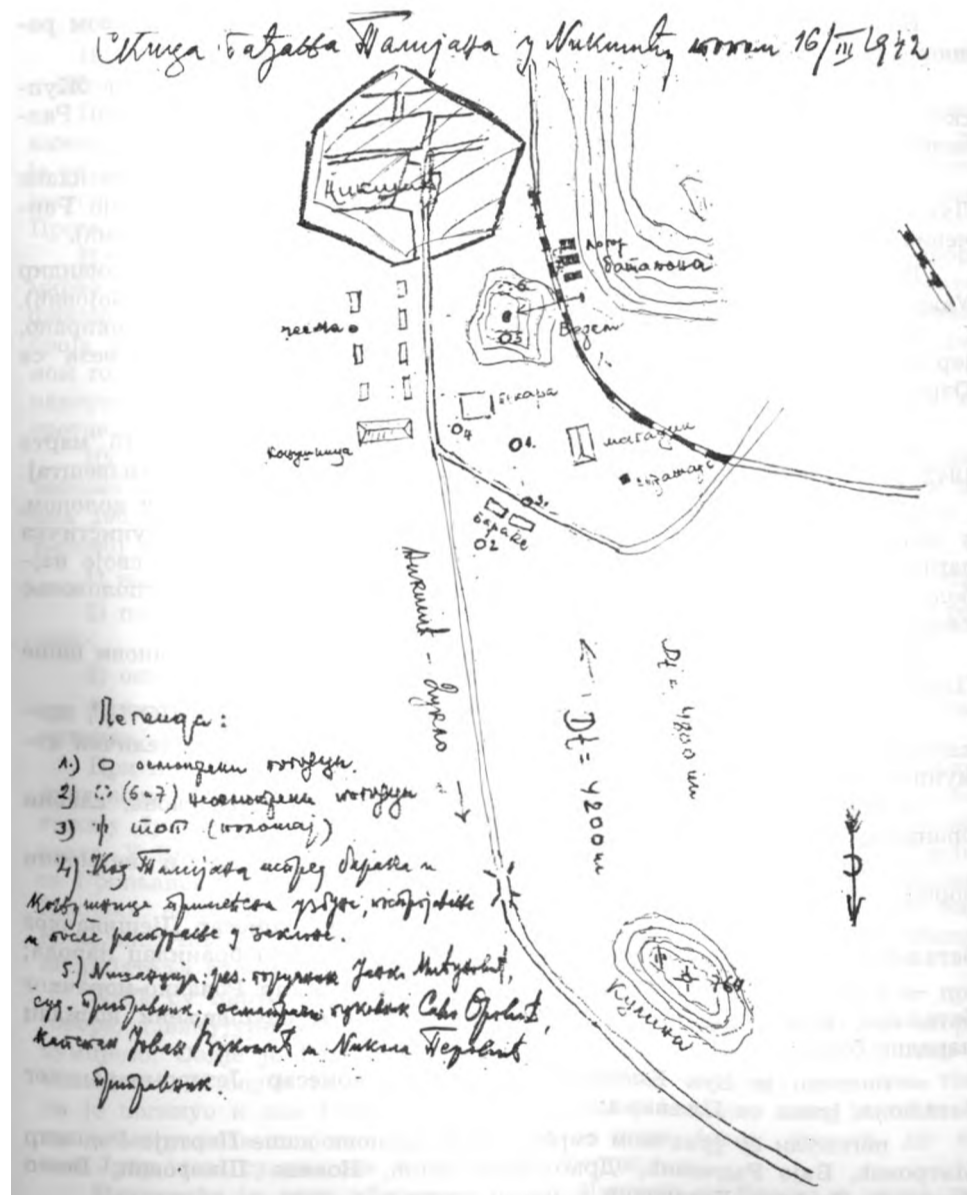 Скица гађања Талијана у Никшићу топом 16/III 1942
Никшић
Логор
батаљона
чесма
Водом
пекара
магацин
коњушница
04
01.
03
бараке
02
Никшић – Лукво →
← Dt = 4800 м
Dt = 4800 м
764
Кулина
Легенда:
1.) О осмотрени погодци.
2) (6–7) неосмотрени погодци
3) топ (положај)
4) Код Талијана испред барака и
коњушнице примећена узбуна, постројавање
и после растурање у заклоне.
5.) Нишанџија: рез. поручник Јанко
суд. приправник, осматрачи пуковник Саво Оровић,
капетан Јован Вукотић и Никола Перовић
приправник.